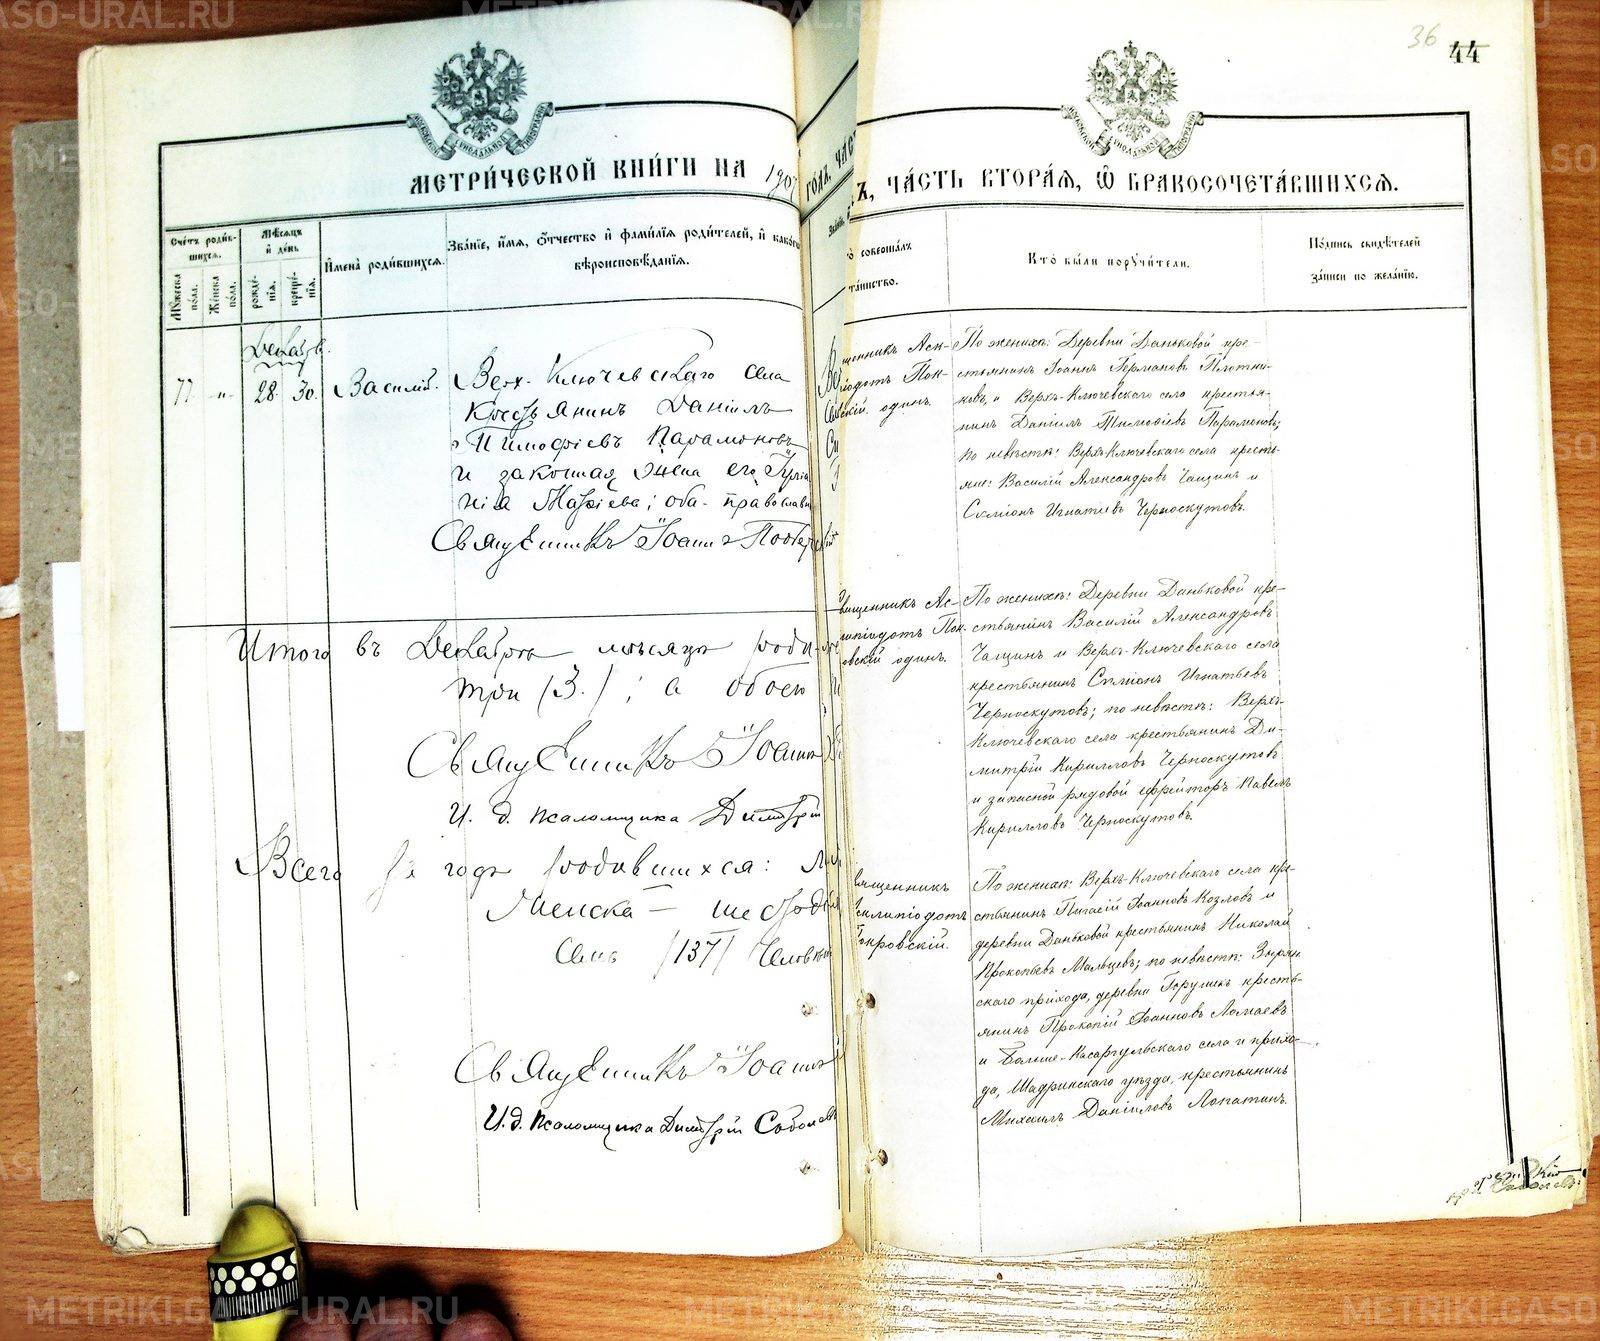 METRIKI.GASO-URAL.RU
МЕТРИ́ЧЕСКОЙ КНИ́ГИ НА 190
Сче́тъ роди́в-
шихся.
Му́жеска по́ла.
Же́нска по́ла.
Мѣ́сяцъ
и҆ де́нь
рожде́-
нїя.
креще́-
нїя.
И҆мена̀ роди́вшихся.
Зва́нїе, и҆́мя, ѻ҆́тчество и҆ фами́лїя роди́телей, и҆
вѣроисповѣ́данїя.
77 „ 28. 30. Василій.
Верх-Ключевскаго села
Крестьянинъ Даніилъ
Тимофѣевъ Парамоновъ
и законная жена его
Матѳіева; оба православн
Священникъ Іоаннъ
Итого въ Декабрѣ мѣсяцѣ роди-
три (3.); а обоего
Священникъ Іоаннъ
И. д. псаломщика Димитрій
Всего въ годъ родившихся:
Женска —
семь /137/ Человѣкъ
Священникъ Іоаннъ
И. д. псаломщика Димитрій Соболевъ
36 44
ГОДЪ, ЧАС
Ъ, ЧА́СТЬ ВТОРА́Я, Ѡ҆ БРАКОСОЧЕТА́ВШИХСЯ.
соверша́лъ
та́инство.
Кто̀ бы́ли порꙋчи́тели.
По́дпись свидѣ́телей
за́писи по жела́нїю.
щенникъ Аск-
лѣпіодотъ Пок-
ровскій одинъ.
По женихѣ: Деревни Даньковой кре-
стьянинъ Іоаннъ Германовъ Плотни-
ковъ, и Верхъ-Ключевского села крестья-
нинъ Даніилъ Тимофіевъ Парамоновъ;
по невѣстѣ: Верхъ-Ключевскаго села кресть-
яне: Василій Александровъ Чащинъ и
Симіонъ Игнатіевъ Черноскутовъ.
вященникъ Ас-
клипіодотъ Пок-
ровскій одинъ.
По женихѣ: Деревни Даньковой кре-
стьянинъ Василій Александровъ
Чащинъ и Верхъ-Ключевскаго села
крестьянинъ Симіонъ Игнатьевъ
Черноскутовъ; по невѣстѣ: Верхъ-
Ключевскаго села крестьянинъ Ди-
митрій Кирилловъ Черноскутовъ
и запасной рядовой ефрейторъ Павелъ
Кирилловъ Черноскутовъ.
вященникъ
склипіодотъ
Покровскій.
По женихѣ: Верхъ-Ключевскаго села кре-
стьянинъ Пигасій Іоанновъ Козловъ и
деревни Даньковой крестьянинъ Николай
Прокопьевъ Мальцевъ; по невѣстѣ: Зырян-
скаго прихода, деревни кресть-
янинъ Прокопій Іоанновъ Ламаевъ
и Больше-Касаргульскаго села и прихо-
да, Шадринскаго уѣзда, крестьянинъ
Михаилъ Даніиловъ Лопатинъ.
METRIKI.GASO-URAL.RU